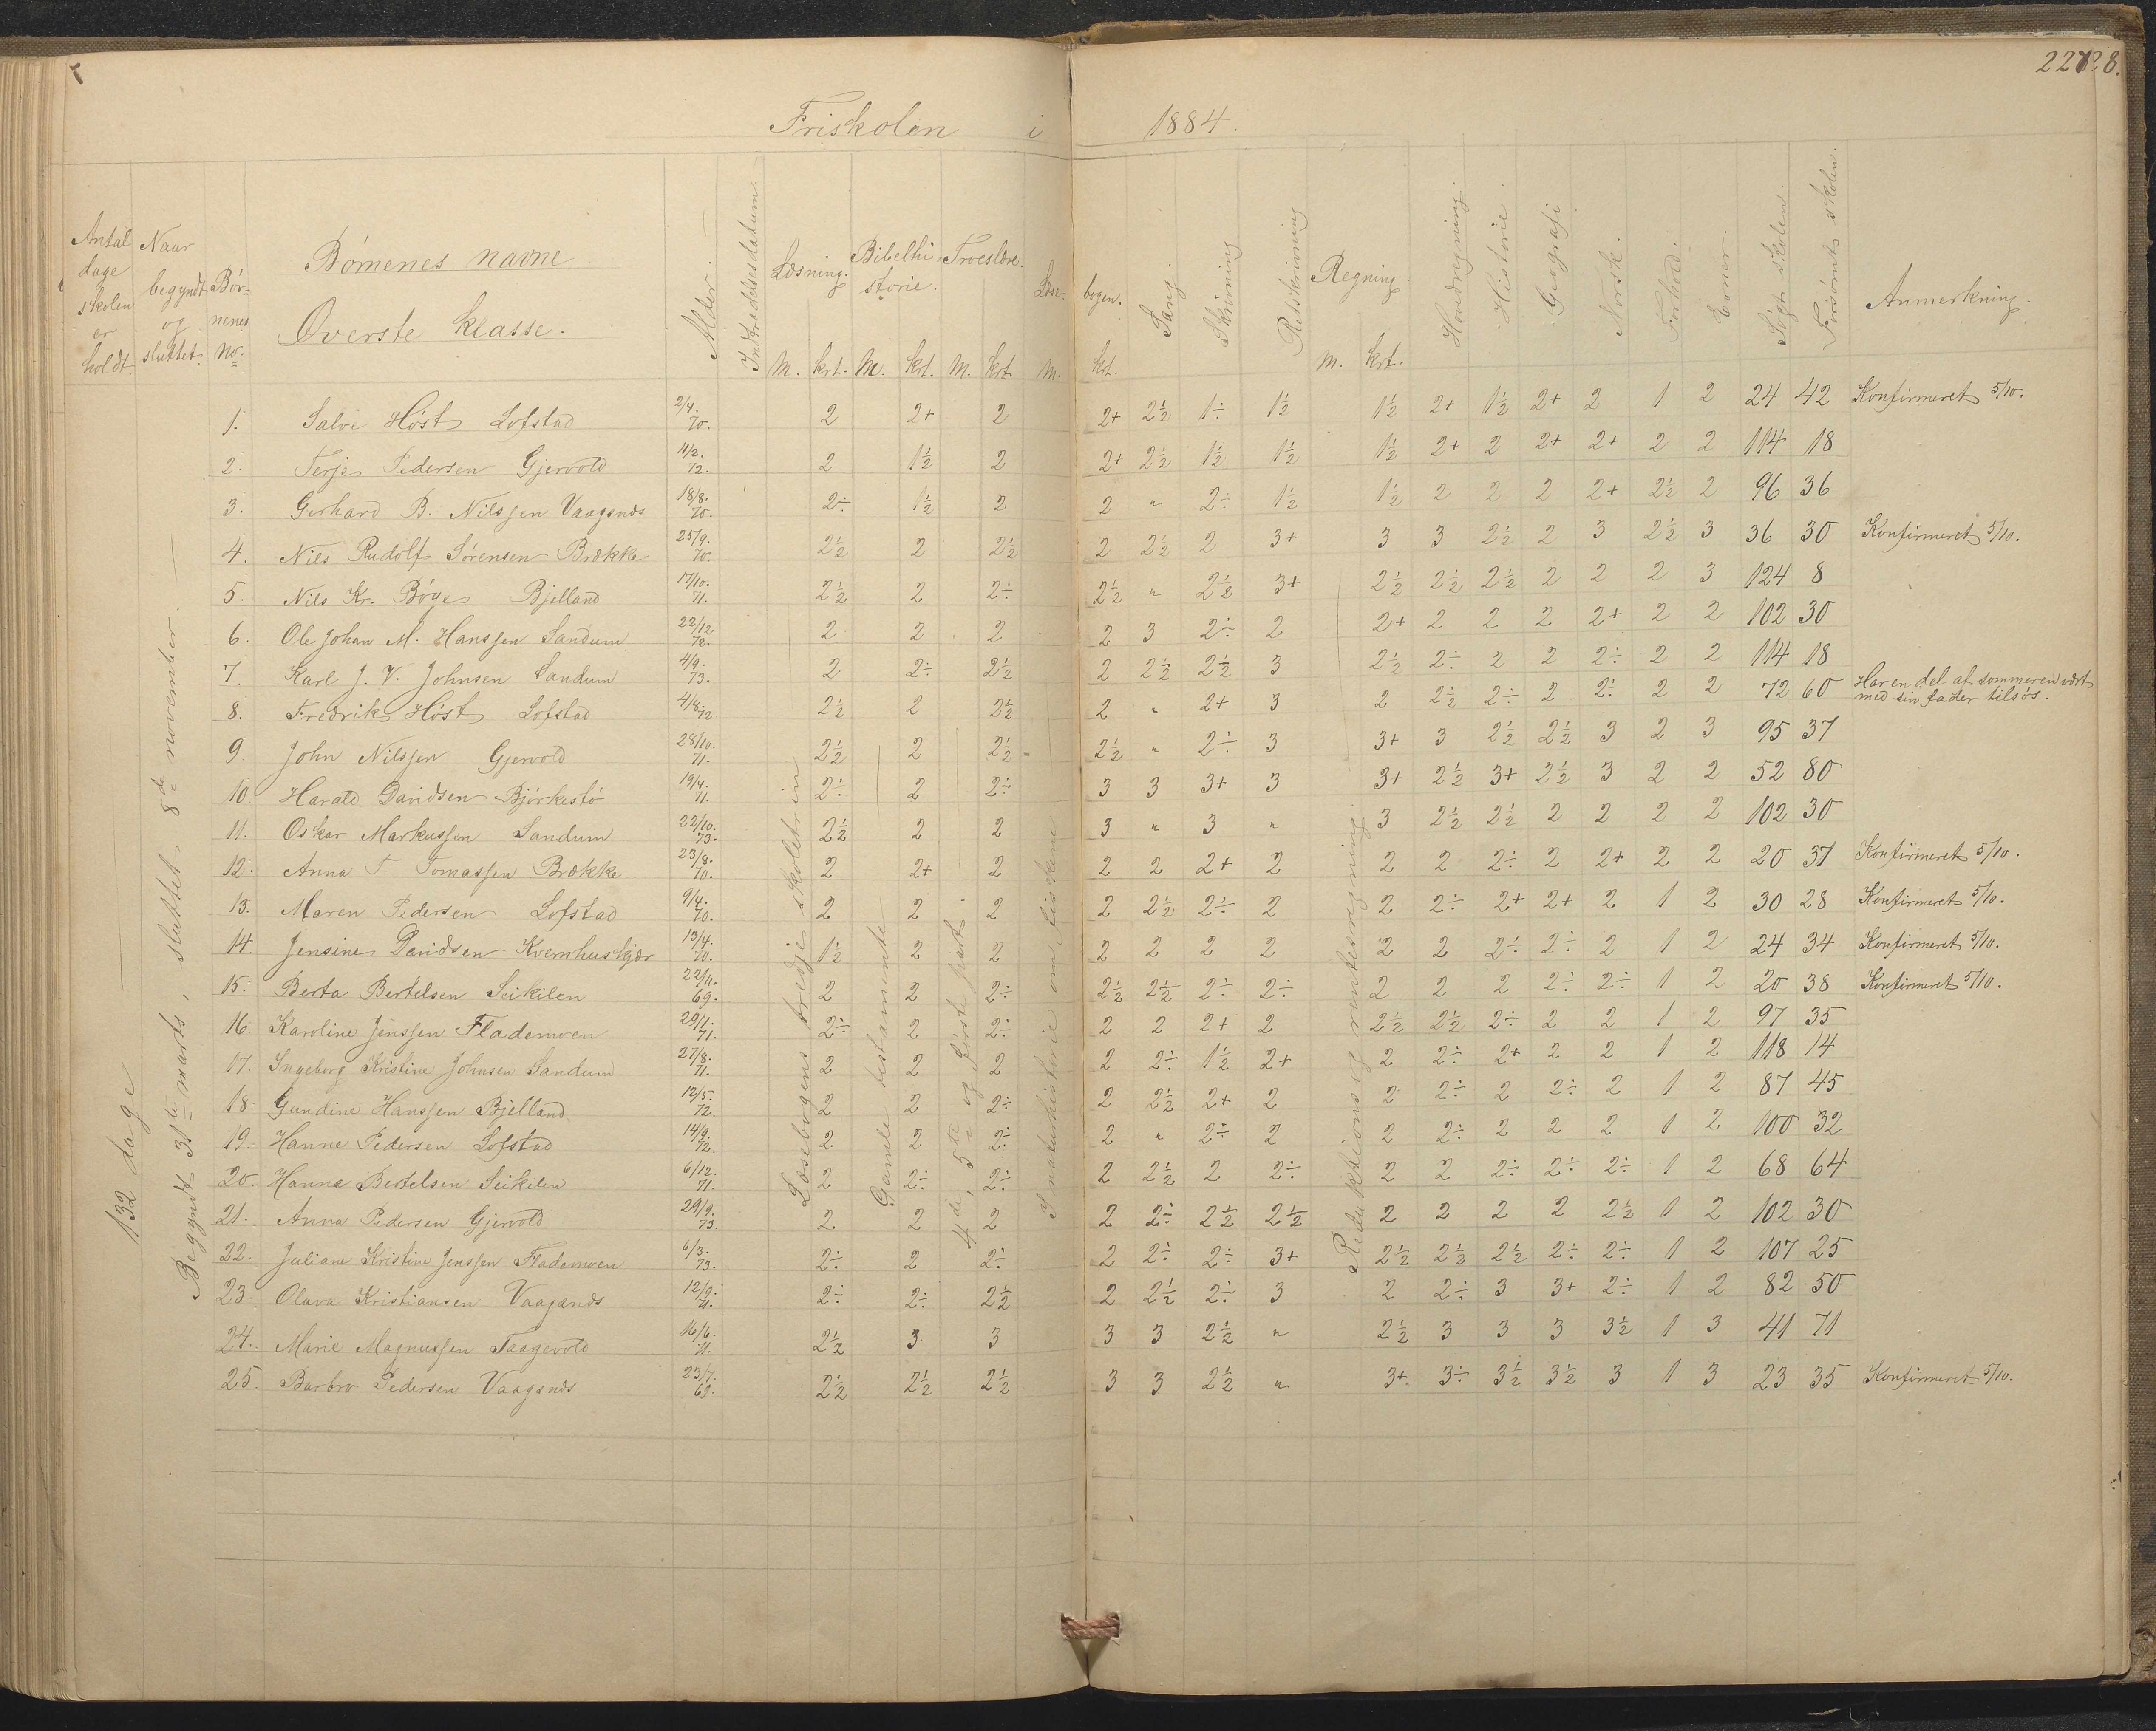 Friskolen i 1884.
Antal dage skolen er holdt. Naar begyndt og sluttet. Børnenes no. Børnenes navne. Øverste klasse. Alder. Indtrædelsesdatum. Læsning. m. krt. Bibelhistorie. m. krt. Troeslære. m. krt. Læsebogen. m. krt. Sang. Skrivning Retskrivning Regning. m. krt. Hovedregning Historie. Geografi Norsk. Forhold. Evner. Søgt skolen. Forsømt skolen. Anmerkning.
132 dage
Begyndt 31te marts, sluttet 8de november.
Læsebogens tredje skoletrin
Gamle testamente
4de, 5te og første part.
I naturhistorie om fiskene
Reduktions og rentesregning.
1. Salve Høst Lofstad 2/4. 70. 2 2+ 2 2+ 2½ 1÷ 1½ 1½ 2+ 1½ 2+ 2 1 2 24 42 Konfirmeret 5/10.
2. Terje Pedersen Gjervold 11/2. 72. 2 1½ 2 2+ 2½ 1½ 1½ 1½ 2+ 2 2+ 2+ 2 2 114 18
3. Gerhard B. Nilssen Vaagsnes 18/8. 70. 2÷ 1½ 2 2 " 2÷ 1½ 1½ 2 2 2 2+ 2½ 2 96 36
4. Nils Rudolf Sørensen Brække 25/9. 70. 2½ 2 2½ 2 2½ 2 3+ 3 3 2½ 2 3 2½ 3 36 30 Konfirmeret 5/10.
5. Nils Kr. Bøye Bjelland 17/10. 71. 2½ 2 2÷ 2½ " 2½ 3+ 2½ 2½ 2½ 2 2 2 3 124 8
6. Ole Johan M. Hanssen Sandum 22/12 72. 2 2 2 2 3 2÷ 2 2+ 2 2 2 2+ 2 2 102 30
7. Karl J. V. Johnsen Sandum 4/9. 73. 2 2÷ 2½ 2 2½ 2½ 3 2½ 2÷ 2 2 2÷ 2 2 114 18
8. Fredrik Høst Lofstad 4/8. 72 2½ 2 2½ 2 " 2+ 3 2 2½ 2÷ 2 2÷ 2 2 72 60 Har en del af sommeren vært med sin fader tilsøs.
9. John Nilssen Gjervold 28/10. 71. 2½ 2 2½ 2½ " 2÷ 3 3+ 3 2½ 2½ 3 2 3 95 37
10. Harald Davidsen Bjørkestø 19/4. 71. 2÷ 2 2÷ 3 3 3+ 3 3+ 2½ 3+ 2½ 3 2 2 52 80
11. Oskar Markussen Sandum 22/10. 73. 2½ 2 2 3 " 3 " 3 2½ 2½ 2 2 2 2 102 30
12. Anna T. Tomassen Brække 23/8. 70. 2 2+ 2 2 2 2+ 2 2 2 2÷ 2 2+ 2 2 20 37 Konfirmeret 5/10.
13. Maren Pedersen Lofstad 9/4. 70. 2 2 2 2 2½ 2÷ 2 2 2÷ 2+ 2+ 2 1 2 30 28 Konfirmeret 5/10.
14. Jensine Davidsen Kvernhuskjær 13/4. 70. 1½ 2 2 2 2 2 2 2 2 2÷ 2÷ 2 1 2 24 34 Konfirmeret 5/10.
15. Berta Bertelsen Seikilen 22/11. 69. 2 2 2÷ 2½ 2½ 2÷ 2÷ 2 2 2 2÷ 2÷ 1 2 20 38 Konfirmeret 5/10.
16. Karoline Jenssen Flademoen 29/1. 71. 2÷ 2 2÷ 2 2 2+ 2 2½ 2½ 2÷ 2 2 1 2 97 35
17. Ingeborg Kristine Johnsen Sandum 27/8. 71. 2 2 2 2 2÷ 1½ 2+ 2 2÷ 2+ 2 2 1 2 118 14
18. Gundine Hanssen Bjelland 12/5. 72. 2 2 2÷ 2 2½ 2+ 2 2 2÷ 2 2÷ 2 1 2 87 45
19. Hanne Pedersen Lofstad 14/9. 72. 2 2 2÷ 2 " 2÷ 2 2 2÷ 2 2 2 1 2 100 32
20. Hanne Bertelsen Seikelen 6/12. 71. 2 2÷ 2÷ 2 2½ 2 2÷ 2 2 2÷ 2÷ 2÷ 1 2 68 64
21. Anna Pedersen Gjervold 29/9. 73. 2 2 2 2 2÷ 2½ 2½ 2 2 2 2 2½ 1 2 102 30
22. Juliane Kristine Jenssen Flademoen 6/3. 73. 2÷ 2 2÷ 2 2÷ 2÷ 3+ 2½ 2½ 2½ 2÷ 2÷ 1 2 107 25
23. Olava Kristiansen Vaagsnes 12/9. 71. 2÷ 2÷ 2½ 2 2½ 2÷ 3 2 2÷ 3 3+ 2÷ 1 2 82 50
24. Marie Magnussen Taagevold 16/6. 71. 2½ 3 3 3 3 2½ " 2½ 3 3 3 3½ 1 3 41 71
25. Barbro Pedersen Vaagsnes 23/7. 69. 2½ 2½ 2½ 3 3 2½ " 3+ 3÷ 3½ 3½ 3 1 3 23 35 Konfirmeret 5/10.